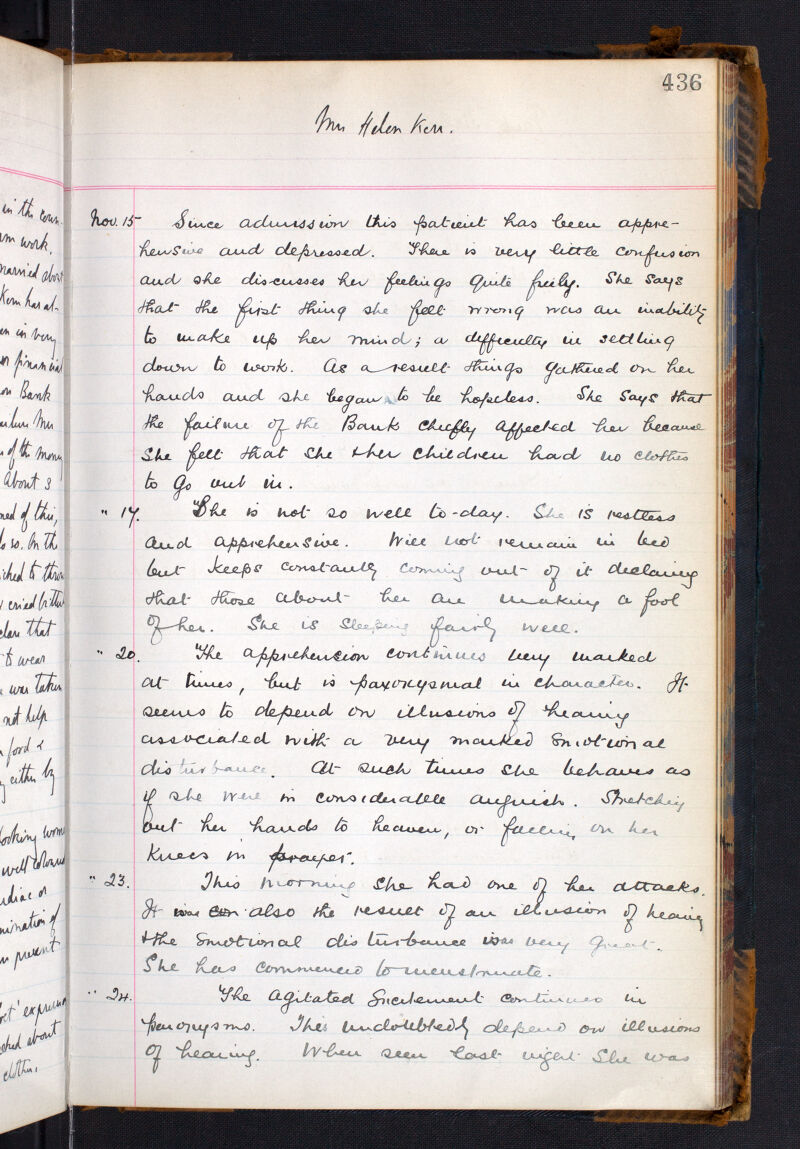 in the coun-
work.
married about
Kerr has al-
en in very
financial
on Bank
Mrs
of the money
About 3
of this,
so. On the
to throw
cried
that
to wear
was taken
not help
food &
either by
looking
well
or
mination of
present
expression
about
clothes.
436
Mrs Helen Kerr.
Nov. 15 Since admission this patient has been appre-
hensive and depressed. There is very little confusion
and she discusses her feelings quite freely. She says
that the first thing she felt wrong was an inability
to make up her mind; a difficulty in settling
down to work. As a result things gathered on her
hands and she began to be hopeless. She says that
the failure of the Bank chiefly affected her because
she felt that she & her children had no clothes
to go out in.
" 17. She is not so well to-day. She is restless
and apprehensive. Will not remain in bed
but keeps constantly coming out of it declaring
that those about her are making a fool
of her. She is sleeping fairly well.
" 20. The apprehension continues very marked
at times, but is paroxysmal in character. It
seems to depend on illusions of hearing
associated with a very marked emotional
disturbance. At such times she behaves as
if she were in considerable anguish. Stretching
out her hands to heaven, or falling on her
knees in prayer.
" 23. This morning she had one of her attacks.
It was also the result of an illusion of hearing
& the emotional disturbance was very great.
She has commenced to menstruate.
" 24. The agitated excitement continues in
paroxysms. This undoubtedly depend on illusions
of hearing. When seen last night she was